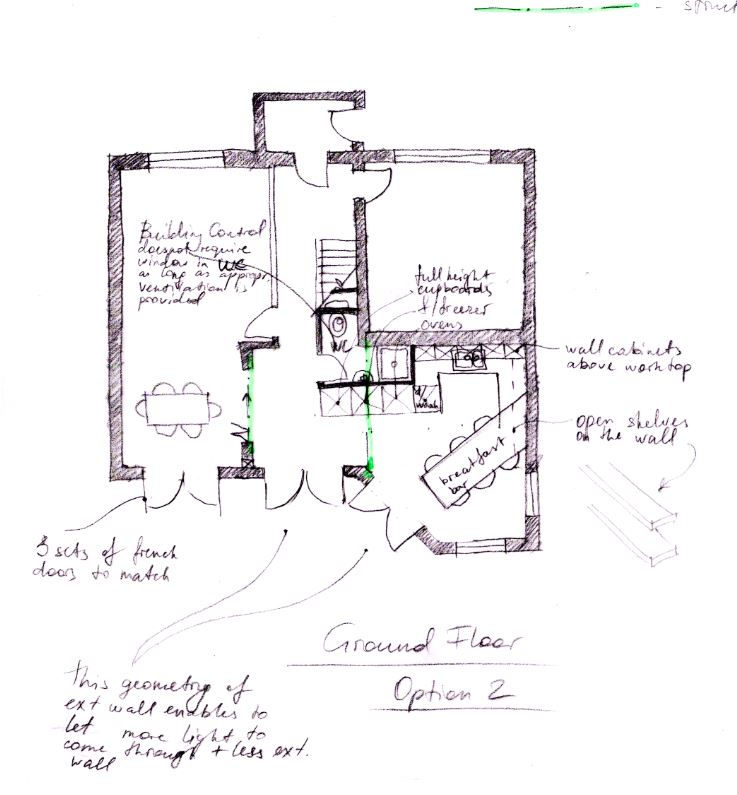 - struct
Building Control
does not require
window in WC
as long as appropr.
ventilation is
provided
full height
cupboards
f/freezer
ovens
WC
d/wash
wall cabinets
above worktop
open shelves
on the wall
breakfast
bar
3 sets of french
doors to match
Ground Floor
Option 2
this geometry of
ext wall enables to
let more light to
come through + less ext.
wall